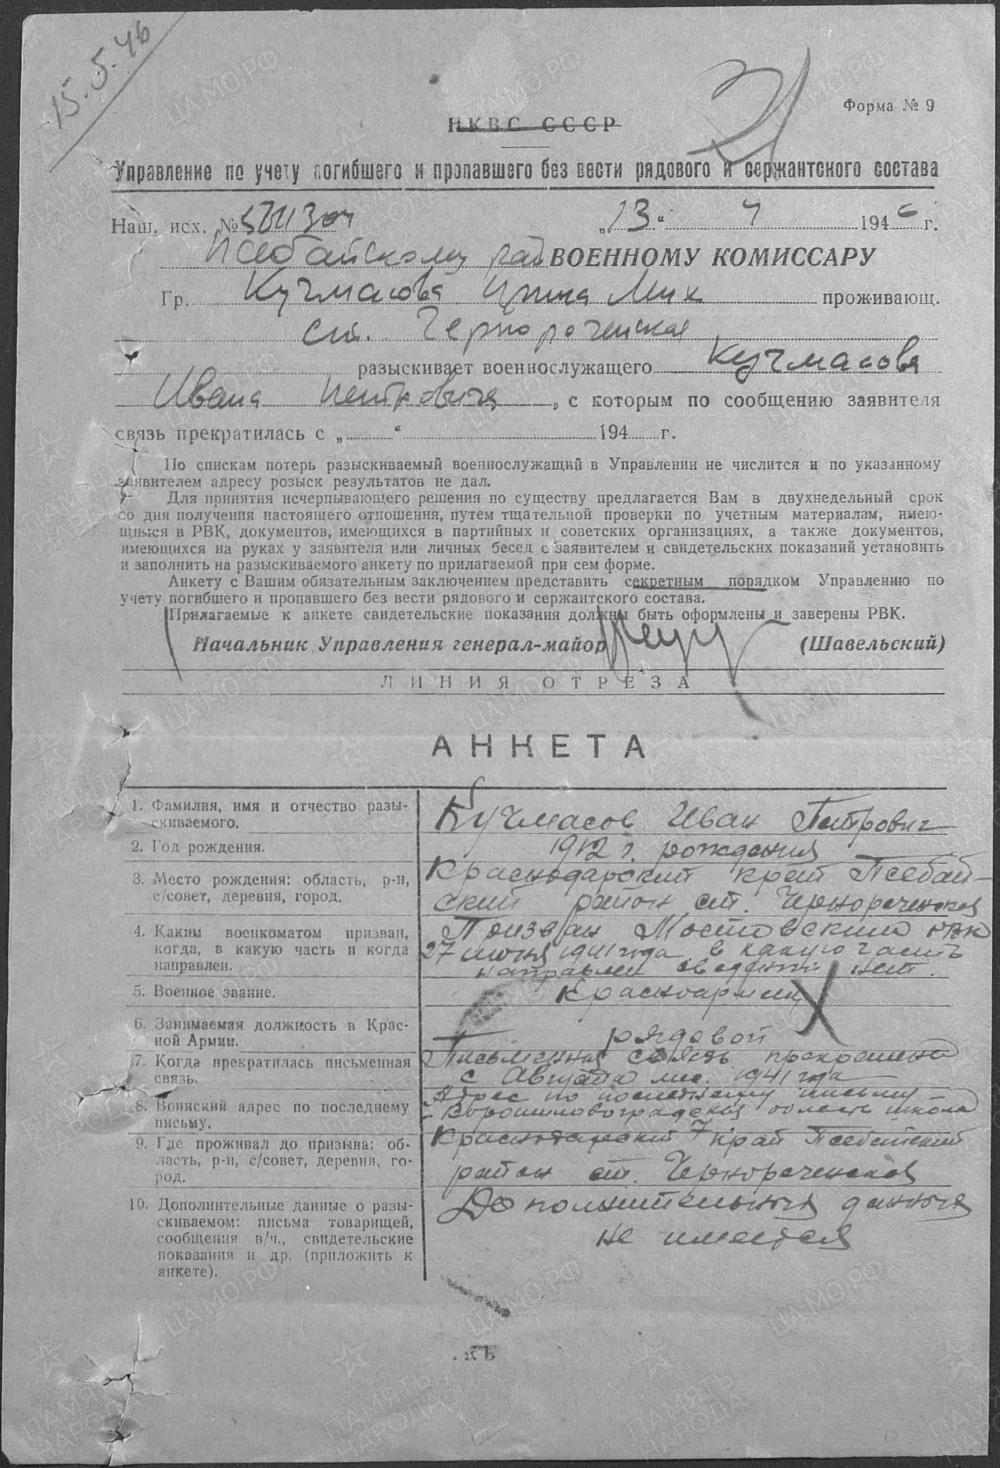 15.5.46
Форма № 9
НКВС СССР
Управление по учету погибшего и пропавшего без вести рядового и сержантского состава
Наш. исх. № „13“ 4 1946 г.
Псебайскому рай ВОЕННОМУ КОМИССАРУ
Гр. Кучмасова Ирина Мих проживающ.
ст. Чернореченская
разыскивает военнослужащего Кучмасова
Ивана Петровича, с которым по сообщению заявителя
связь прекратилась с „ “ 194 г.
По спискам потерь разыскиваемый военнослужащий в Управлении не числится и по указанному
заявителем адресу розыск результатов не дал.
Для принятия исчерпывающего решения по существу предлагается Вам в двухнедельный срок
со дня получения настоящего отношения, путем тщательной проверки по учетным материалам, имею-
щимся в РВК, документов, имеющихся в партийных и советских организациях, а также документов,
имеющихся на руках у заявителя или личных бесед с заявителем и свидетельских показаний установить
и заполнить на разыскиваемого анкету по прилагаемой при сем форме.
Анкету с Вашим обязательным заключением представить секретным порядком Управлению по
учету погибшего и пропавшего без вести рядового и сержантского состава.
Прилагаемые к анкете свидетельские показания должны быть оформлены и заверены РВК.
Начальник Управления генерал-майор (Шавельский)
ЛИНИЯ ОТРЕЗА
АНКЕТА
1. Фамилия, имя и отчество разы-
скиваемого.
Кучмасов Иван Петрович
2. Год рождения.
1912 г. рождения
3. Место рождения: область, р-н,
с/совет, деревня, город.
Краснодарский край Псебай-
ский район ст. Чернореченская
4. Каким военкоматом призван,
когда, в какую часть и когда
направлен.
Призван Мостовским РВК
27 июня 1941 года в какую часть
направлен сведений нет.
5. Военное звание.
Красноармеец
6. Занимаемая должность в Крас-
ной Армии.
рядовой
7. Когда прекратилась письменная
связь.
Письменная связь прекращена
с Августа мес. 1941 года
8. Воинский адрес по последнему
письму.
Адрес по последнему письму
Ворошиловоградская область школа
9. Где проживал до призыва: об-
ласть, р-н, с/совет, деревня, го-
род.
Краснодарский край Псебайский
район ст. Чернореченская
10. Дополнительные данные о разы-
скиваемом: письма товарищей,
сообщения в/ч., свидетельские
показания и др. (приложить к
анкете).
Дополнительных данных
не имеется